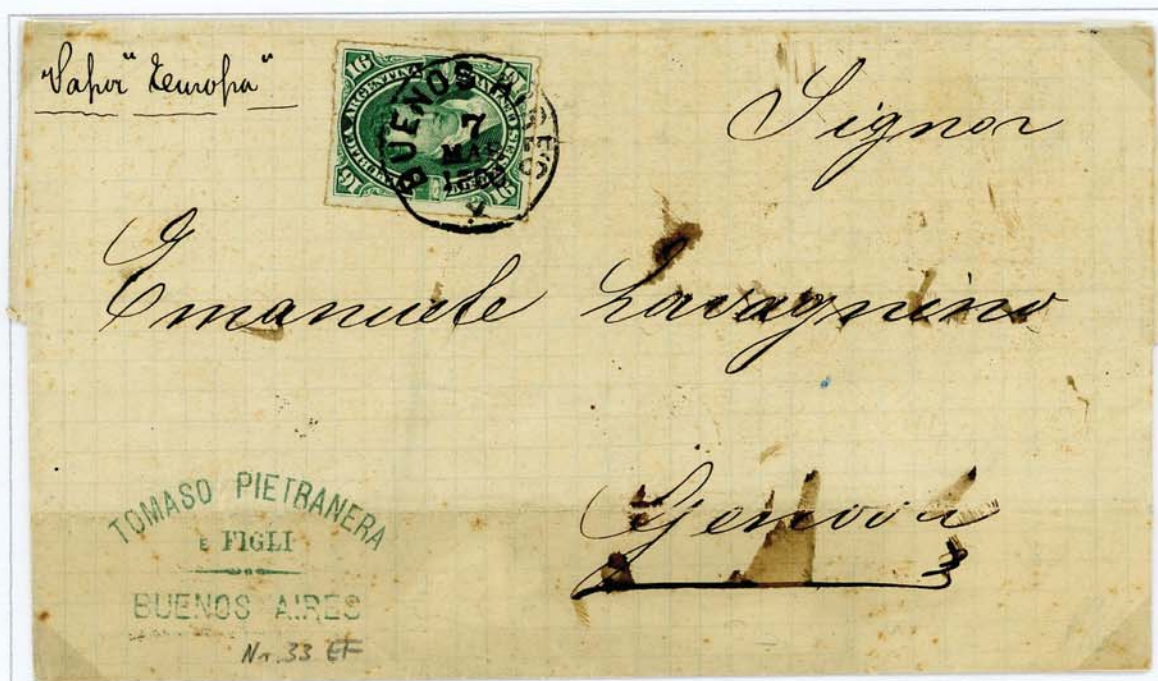 Vapor "Europa"
16 16
REPUBLICA ARGENTINA
16 16
BUENOS AIRES
7
Signor
Emanuele Lavagnino
Genova
TOMASO PIETRANERA
E FIGLI
BUENOS AIRES
Nr. 33 EF